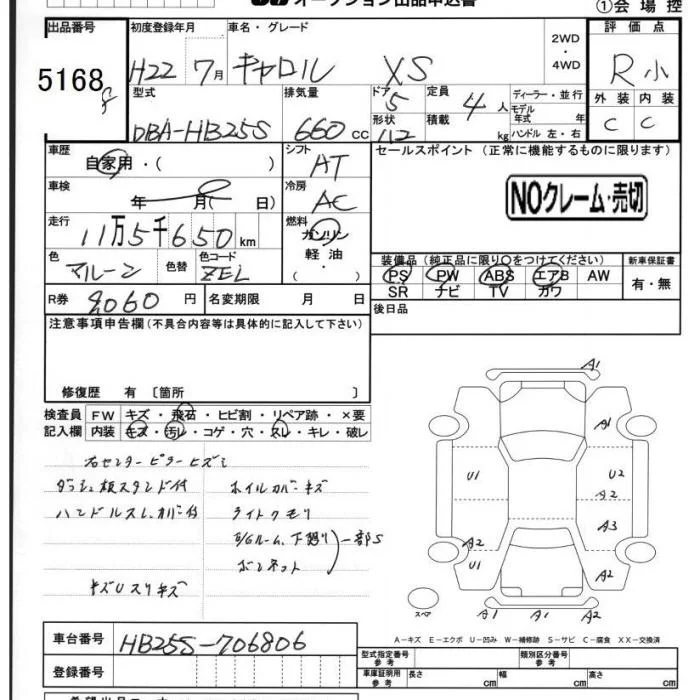 オークション出品申込書
①会場控
出品番号
初度登録年月 車名・グレード
評価点
5168
H22 7月 キャロル XS
2WD
・
4WD
R小
型式
排気量
ドア 5
定員 4人
ディーラー・並行
外装 内装
DBA-HB25S
660cc
形状 112
積載 kg
モデル年式 年
ハンドル 左・右
C C
車歴
自家用・( )
シフト
AT
セールスポイント (正常に機能するものに限ります)
車検
年 月( 日)
冷房
AC
NOクレーム・売切
走行
11万5千650km
燃料
ガソリン
軽油
・
( )
色
マルーン
色替
色コード
ZEL
装備品(純正品に限り○をつけてください)
新車保証書
PS PW ABS エアB AW
有・無
SR ナビ TV カワ
R券 8060円
名変期限 月 日
後日品
注意事項申告欄(不具合内容等は具体的に記入して下さい)
修復歴 有 〔箇所 〕
検査員
記入欄
FW キズ・飛石・ヒビ割・リペア跡・×要
内装 キズ・汚レ・コゲ・穴・スレ・キレ・破レ
右センターピラーヒズミ
ダッシュ板スタンド付 ホイルカバーキズ
ハンドルスレ、カバー付 ライトクモリ
E/Gルーム、下廻り 一部S
ボンネット
キズUスリキズ
A1
A1
U1
U2
A2
A3
A2
U1
A2
スペア
A1 A1 A2
A-キズ E-エクボ U-凹み W-補修跡 S-サビ C-腐食 XX-交換済
車台番号 HB25S-706806
登録番号
型式指定番号 参考
類別区分番号 参考
車庫証明用 参考
長さ cm
幅 cm
高さ cm